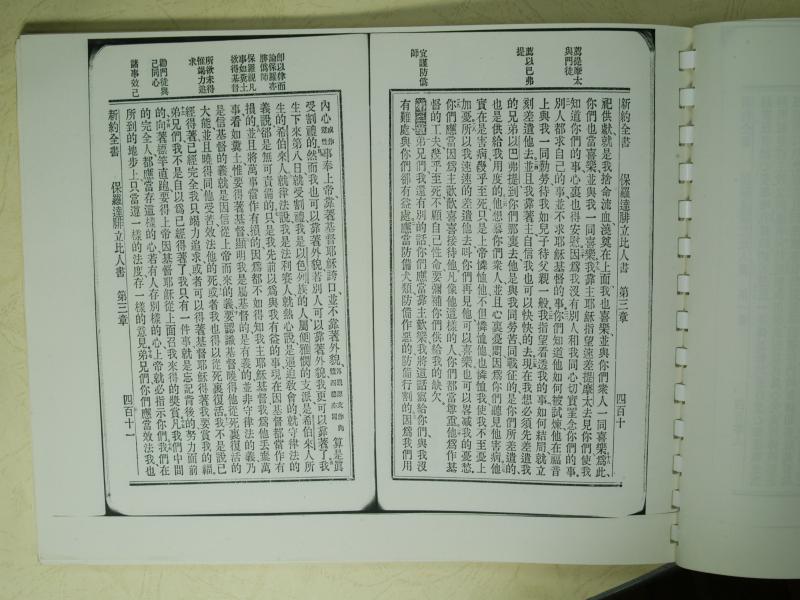 新約全書　保羅達腓立比人書　第三章　四百十
薦提摩太
與門徒
薦以巴弗
提
宜謹防偽
師
祀供獻就是我捨命流血澆奠在上面也喜樂並與你們衆人一同喜樂爲此
你們也當喜樂並與我一同喜樂我靠主耶穌指望速差提摩太去見你們使我
知道你們的事心寔也得安慰因爲我沒有別人和我同心切實罣念你們的事
別人都求自己的事並不求耶穌基督的事你們知道他如何被試煉他在福音
上與我一同勤勞待我如兒子待父親一般我指望看透我的事如何結局就立
刻差遣他去並且我靠著主自信我也可以快快的去現在我想必須先差遣我
的兄弟以巴弗提到你們那裏去他是與我同勞苦同戰征的是你們所差遣的
也是供給我用度的他想慕你們衆人並且心裏憂悶因爲你們聽見他害病他
實在是害病幾乎至死只是上帝憐恤他不但憐恤他也憐恤我使我不至憂上
加憂所以我速速的差遣他去叫你們再見他可以喜樂也可以畧減我的憂愁
你們應當因爲主歡歡喜喜接待他凡像他這樣的人你們都當尊重他爲作基
督的工夫幾乎至死不顧自己性命要彌補你們供給我的缺欠
弟兄們我還有別的話你們應當靠主歡樂我將這話寫給你們與我沒
有難處與你們卻有益處應當防備犬類防備作惡的防備行割的因爲我們用
即以律而
論保羅亦
勝偽師
保羅視凡
事如糞土
欲得基督
所欲未得
惟竭力追
求
勸門徒與
己同心
諸事效己
內心事奉上帝靠著基督耶穌誇口並不靠著外貌算是眞
受割禮的然而我也可以靠著外貌若別人可以靠著外貌我更可以靠著了我
生下來第八日就受割禮我是以色列族的人屬便雅憫的支派是希伯來人所
生的希伯來人就律法說我是法利賽人就熱心說是逼迫敎會的就守律法的
義說卻是無可責備的只是我先前以爲與我有益的事現在因基督都當作有
損的並且將萬事當作有損的因爲都不如得知我主耶穌基督我爲他丟棄萬
事看如糞土惟要得著基督顯明我是屬基督的是有義的並非守律法的義乃
是信基督的義就是因信從上帝而來的義要認識基督使他從死裏復活的
大能並且曉得同他受苦效法他的死或者我也得以從死裏復活我不是說已
經得著已經完全我只竭力追求或者可以得著基督耶穌得著我要賞我的福
弟兄們我不是自以爲已經得著了我只有一件事就是忘記背後的努力面前
的向著標竿直跑要得上帝因基督耶穌從上面召我來得的獎賞凡我們中間
的完全人都應當存這樣的心若有人存別樣的心上帝就必指示你們我們在
所到的地步上只當遵一樣的法度存一樣的意見弟兄們你們應當效法我也
新約全書　保羅達腓立比人書　第三章　四百十一